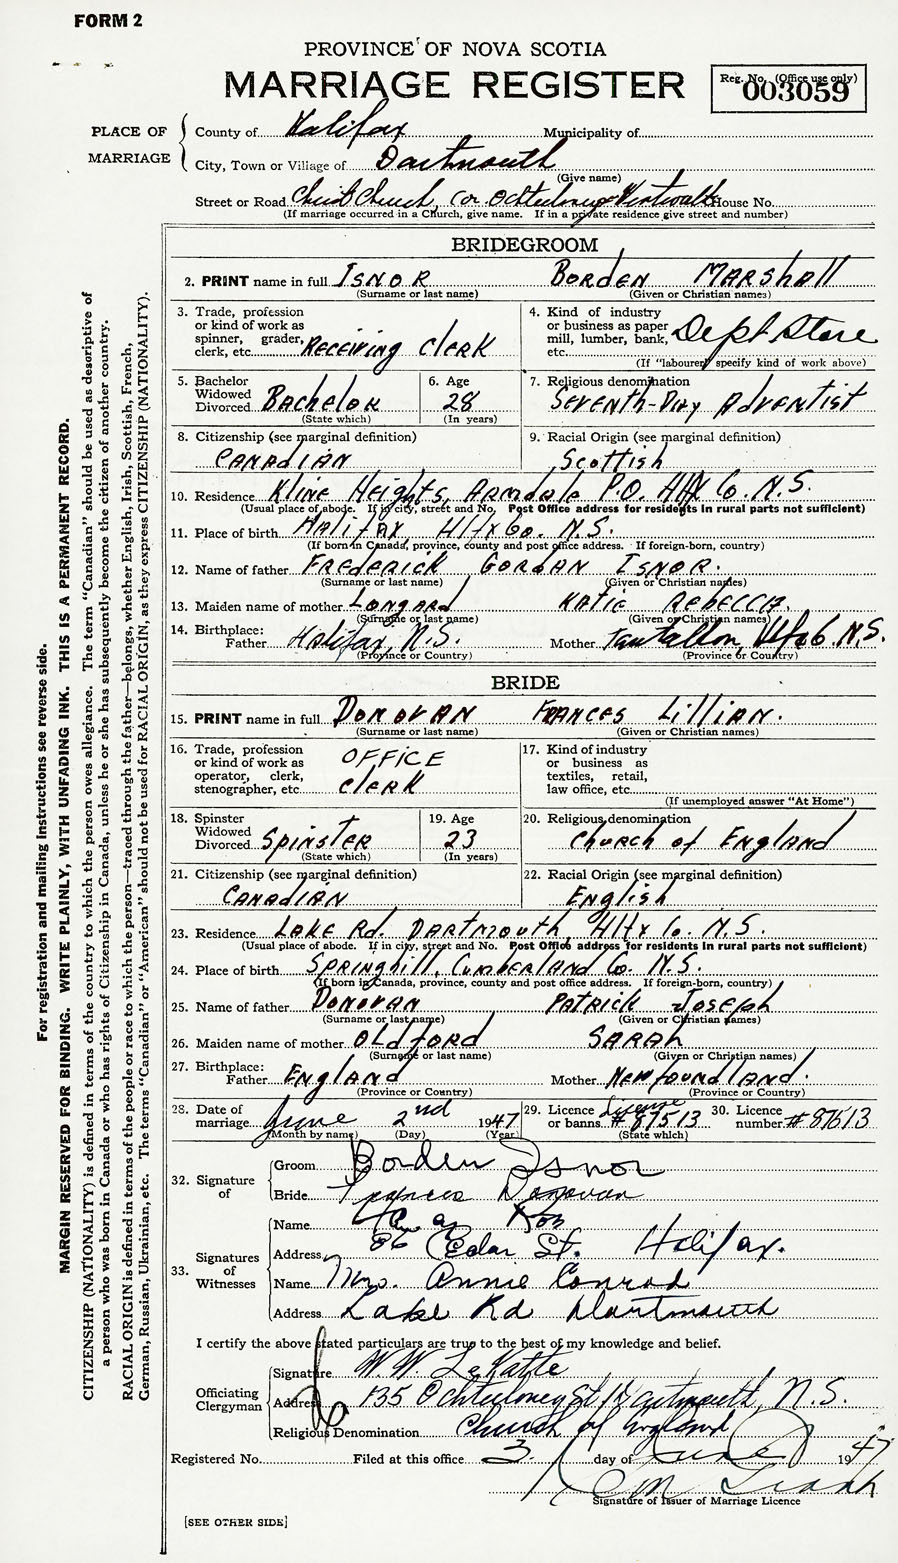 FORM 2
PROVINCE OF NOVA SCOTIA
MARRIAGE REGISTER
Reg. No. (Office use only)
003059
PLACE OF MARRIAGE
County of Halifax Municipality of
City, Town or Village of Dartmouth
(Give name)
Street or Road Christ Church, Cor. Ochterloney & Wentworth House No.
(If marriage occurred in a Church, give name. If in a private residence give street and number)
BRIDEGROOM
2. PRINT name in full ISNOR BORDEN MARSHALL
(Surname or last name) (Given or Christian names)
3. Trade, profession or kind of work as spinner, grader, clerk, etc. RECEIVING CLERK
4. Kind of industry or business as paper mill, lumber, bank, etc. Dept Store
(If "labourer" specify kind of work above)
5. Bachelor Widowed Divorced BACHELOR
(State which)
6. Age 28
(In years)
7. Religious denomination SEVENTH-DAY ADVENTIST
8. Citizenship (see marginal definition) CANADIAN
9. Racial Origin (see marginal definition) Scottish
10. Residence Kline Heights, Armdale P.O. Hfx Co. N.S.
(Usual place of abode. If in city, street and No. Post Office address for residents in rural parts not sufficient)
11. Place of birth HALIFAX Hfx Co. N.S.
(If born in Canada, province, county and post office address. If foreign-born, country)
12. Name of father FREDERICK GORDAN ISNOR.
(Surname or last name) (Given or Christian names)
13. Maiden name of mother LONGARD KATIE REBECCA.
(Surname or last name) (Given or Christian names)
14. Birthplace: Father Halifax, N.S. Mother Tantallon, Hfx Co. N.S.
(Province or Country) (Province or Country)
BRIDE
15. PRINT name in full DONOVAN FRANCES LILLIAN.
(Surname or last name) (Given or Christian names)
16. Trade, profession or kind of work as operator, clerk, stenographer, etc. OFFICE CLERK
17. Kind of industry or business as textiles, retail, law office, etc.
(If unemployed answer "At Home")
18. Spinster Widowed Divorced SPINSTER
(State which)
19. Age 23
(In years)
20. Religious denomination CHURCH OF ENGLAND
21. Citizenship (see marginal definition) CANADIAN
22. Racial Origin (see marginal definition) English
23. Residence LAKE Rd. DARTMOUTH, Hfx Co. N.S.
(Usual place of abode. If in city, street and No. Post Office address for residents in rural parts not sufficient)
24. Place of birth SPRINGHILL, CUMBERLAND Co. N.S.
(If born in Canada, province, county and post office address. If foreign-born, country)
25. Name of father DONOVAN PATRICK JOSEPH
(Surname or last name) (Given or Christian names)
26. Maiden name of mother OLDFORD SARAH
(Surname or last name) (Given or Christian names)
27. Birthplace: Father ENGLAND Mother NEWFOUNDLAND.
(Province or Country) (Province or Country)
28. Date of marriage June 2nd 1947
(Month by name) (Day) (Year)
29. Licence or banns License # 87513
(State which)
30. Licence number # 87513
32. Signature of
Groom Borden Isnor
Bride Frances Donovan
33. Signatures of Witnesses
Name
Address 86 Cedar St. Halifax.
Name Mrs. Annie Conrad
Address Lake Rd Dartmouth
I certify the above stated particulars are true to the best of my knowledge and belief.
Officiating Clergyman
Signature W. W. LeKatte
Address 135 Ochterloney St, Dartmouth, N.S.
Religious Denomination Church of England
Registered No. Filed at this office 3 day of June 1947
Signature of Issuer of Marriage Licence
[SEE OTHER SIDE]
For registration and mailing instructions see reverse side.
MARGIN RESERVED FOR BINDING. WRITE PLAINLY, WITH UNFADING INK. THIS IS A PERMANENT RECORD.
CITIZENSHIP (NATIONALITY) is defined in terms of the country to which the person owes allegiance. The term "Canadian" should be used as descriptive of
a person who was born in Canada or who has rights of Citizenship in Canada, unless he or she has subsequently become the citizen of another country.
RACIAL ORIGIN is defined in terms of the people or race to which the person—traced through the father—belongs, whether English, Irish, Scottish, French,
German, Russian, Ukrainian, etc. The terms "Canadian" or "American" should not be used for RACIAL ORIGIN, as they express CITIZENSHIP (NATIONALITY).